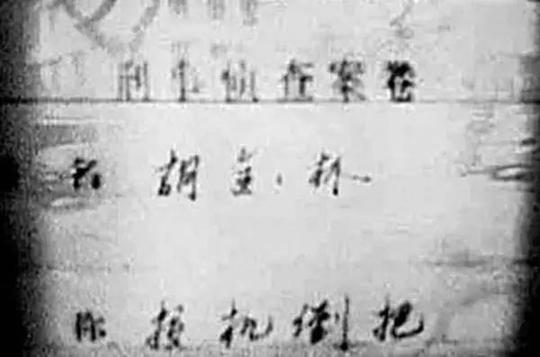 刑事侦查案卷
胡金林
投机倒把